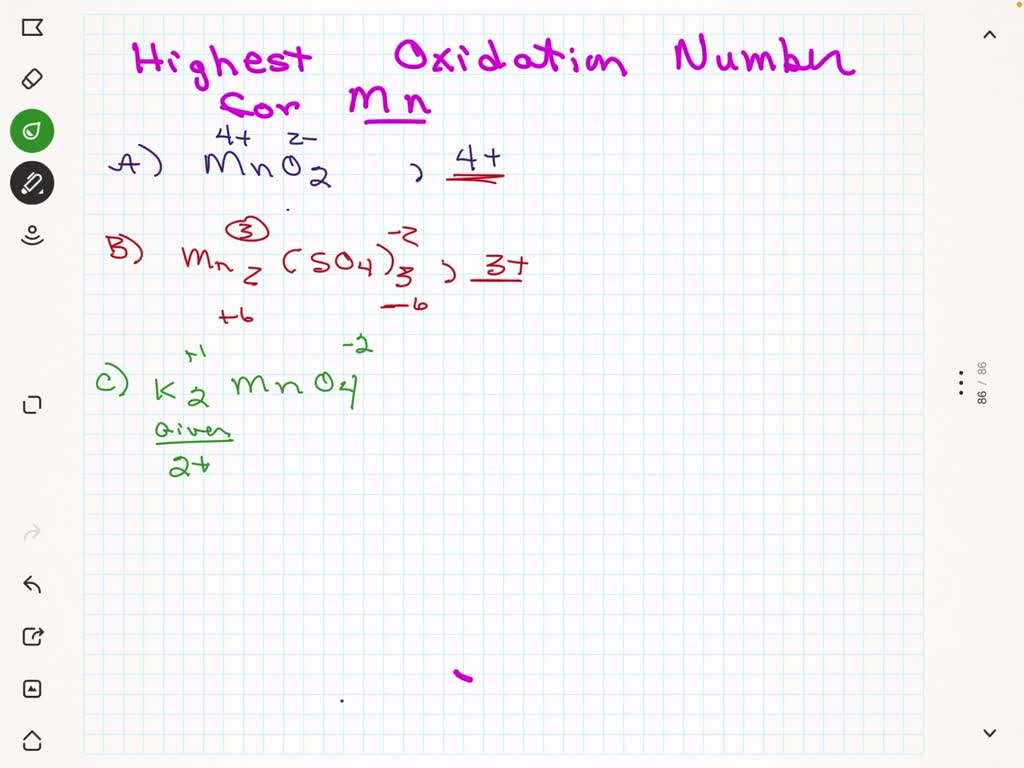 Highest Oxidation Number
for Mn
4+ 2-
A) MnO2 , 4+
3 -2
B) Mn2 (SO4)3 , 3+
+6 -6
+1 -2
C) K2 MnO4
Given
2+
86 / 86